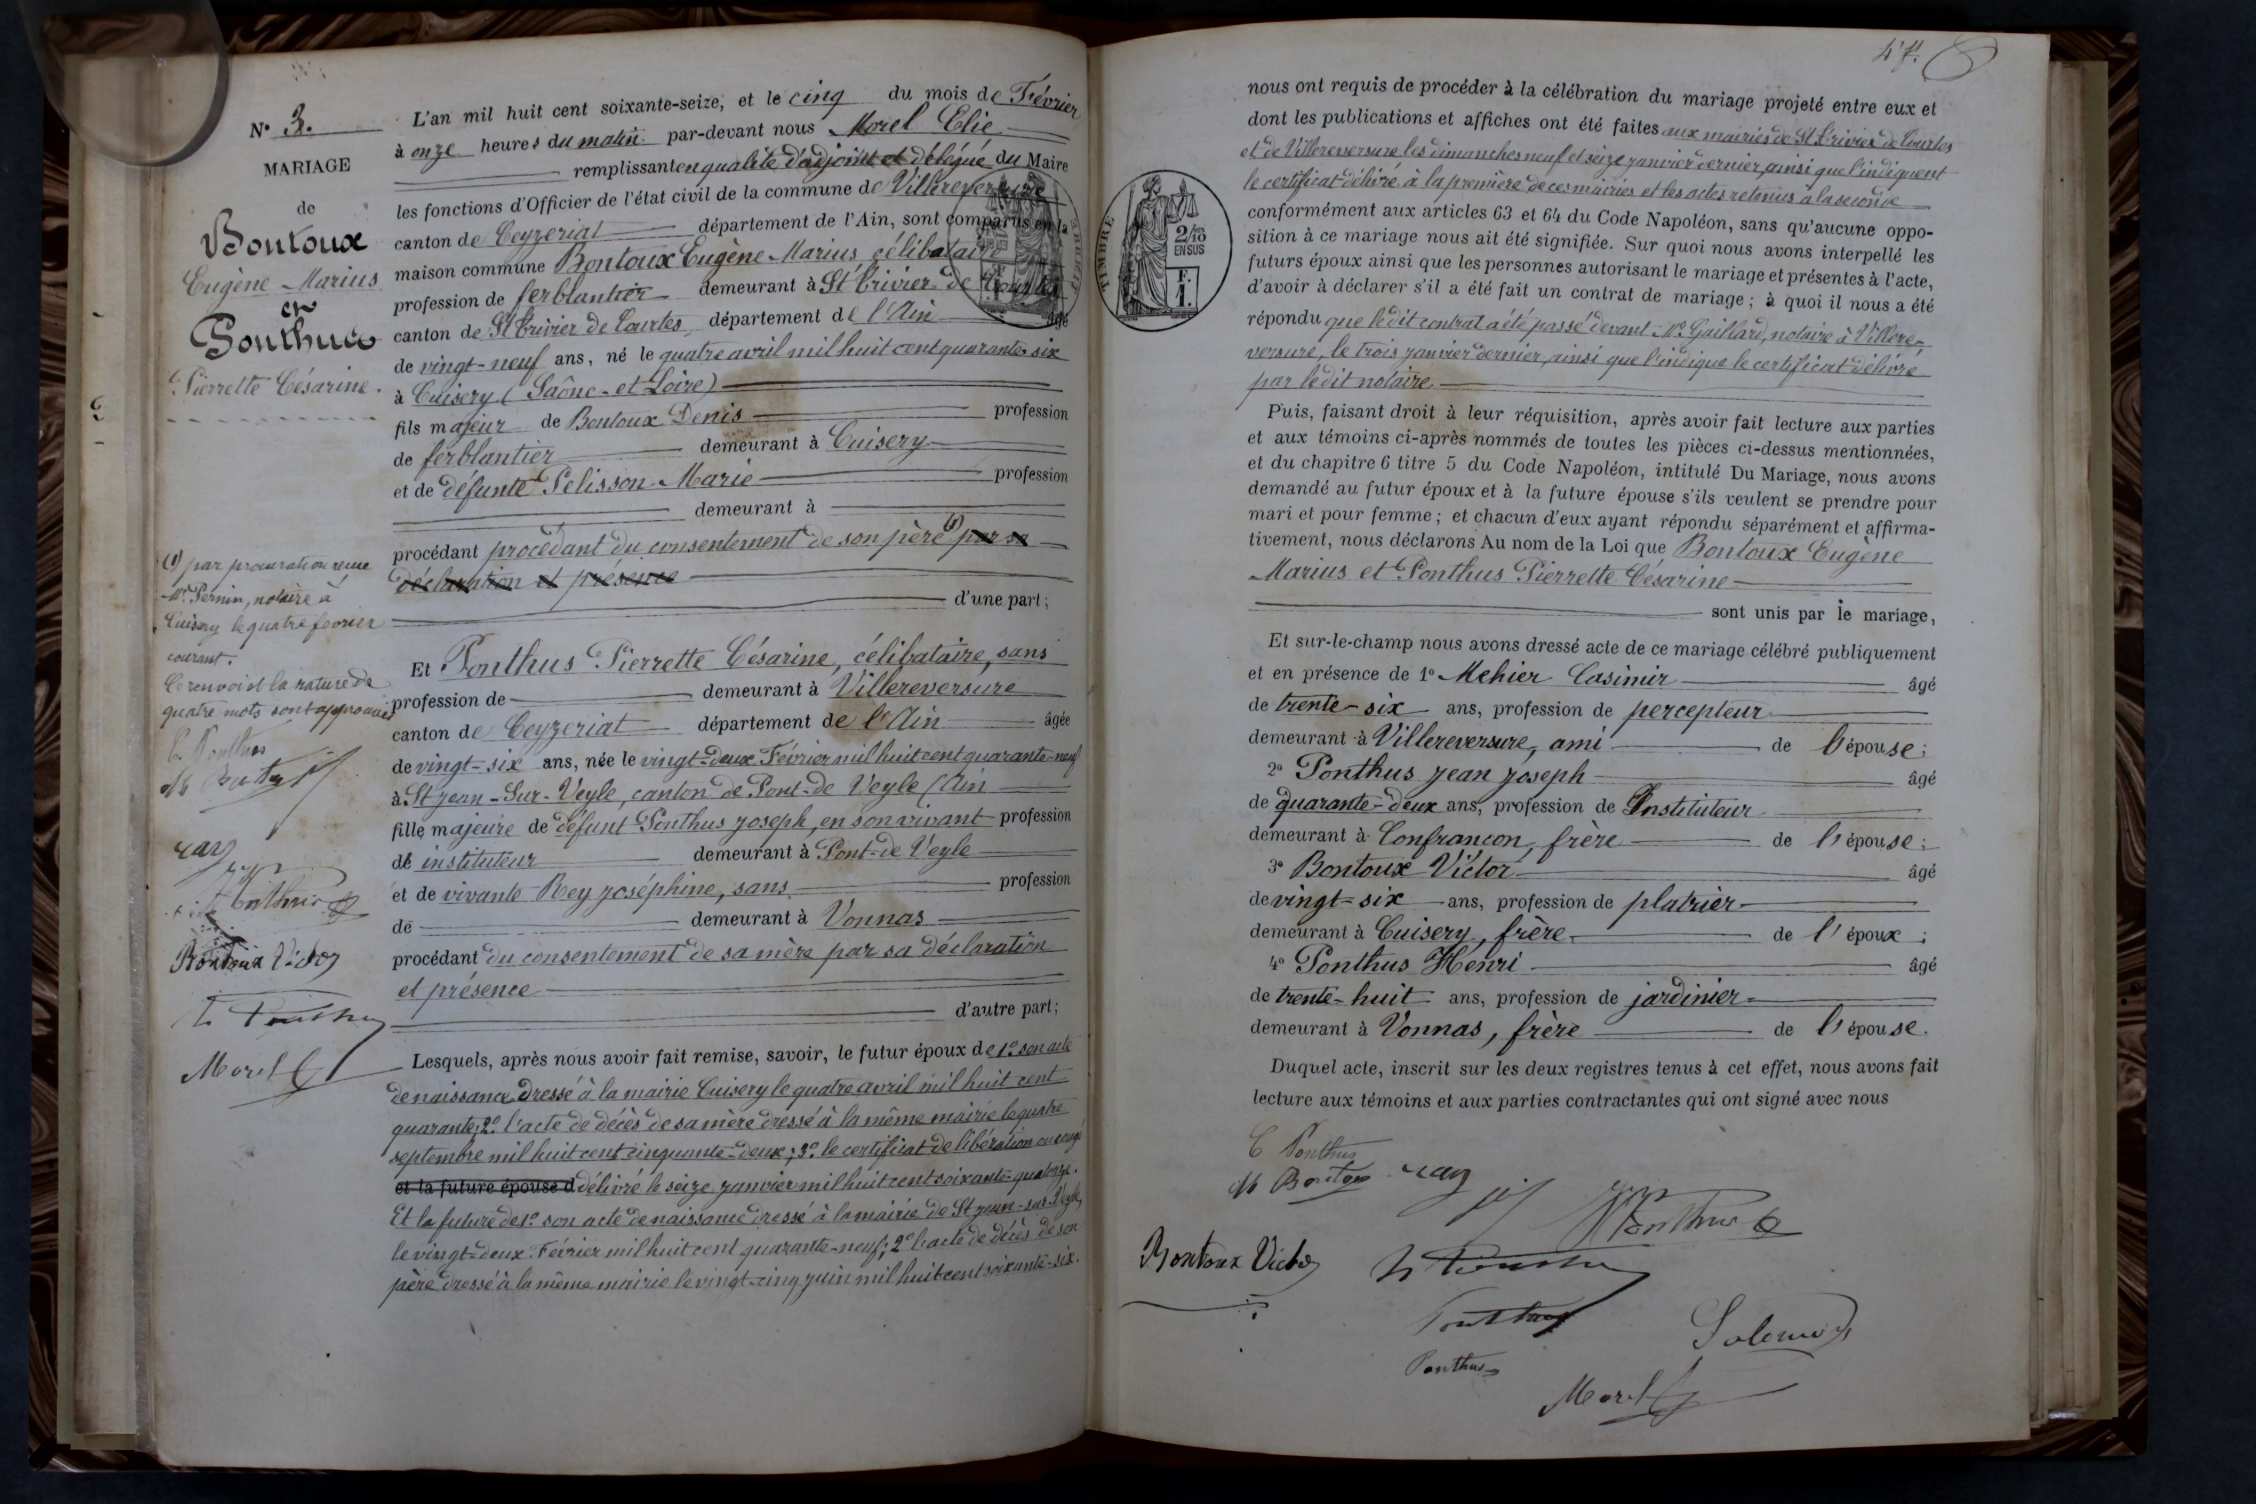 N° 3.
MARIAGE
de
Bontoux
Eugène Marius
et
Ponthus
Pierrette Césarine.
(1) par procuration reçue
Me Pernin, notaire à
Cuisery le quatre février
courant.
Ce renvoi et la rature de
quatre mots sont approuvés
C. Ponthus
M Bontoux
rey
Ponthus
Bontoux Victor
h Ponthus
Morel
L'an mil huit cent soixante-seize, et le cinq du mois de Février
à onze heures du matin par-devant nous Morel Elie
remplissant en qualité d'adjoint et délégué du Maire
les fonctions d'Officier de l'état civil de la commune de Villereversure
canton de Ceyzeriat département de l'Ain, sont comparus en la
maison commune Bontoux Eugène Marius, célibataire
profession de ferblantier demeurant à St Trivier de Courtes
canton de St Trivier de Courtes, département de l'Ain âgé
de vingt-neuf ans, né le quatre avril mil huit cent quarante six
à Cuisery (Saône-et-Loire)
fils majeur de Bontoux Denis profession
de ferblantier demeurant à Cuisery
et de défunte Pelisson Marie profession
demeurant à
procédant procédant du consentement de son père (1) par sa
déclaration et présence
d'une part;
Et Ponthus Pierrette Césarine, célibataire, sans
profession de demeurant à Villereversure
canton de Ceyzeriat département de l'Ain âgée
de vingt-six ans, née le vingt-deux Février mil huit cent quarante-neuf
à St Jean-Sur-Veyle, canton de Pont-de Veyle (Ain
fille majeure de défunt Ponthus Joseph, en son vivant profession
de instituteur demeurant à Pont-de Veyle
et de vivante Rey Joséphine, sans profession
de demeurant à Vonnas
procédant du consentement de sa mère par sa déclaration
et présence
d'autre part;
Lesquels, après nous avoir fait remise, savoir, le futur époux de 1° son acte
de naissance dressé à la mairie Cuisery le quatre avril mil huit cent
quarante; 2° l'acte de décès de sa mère dressé à la même mairie le quatre
septembre mil huit cent cinquante-deux; 3° le certificat de libération ou congé
et la future épouse d délivré le seize janvier mil huit cent soixante-quatorze.
Et la future de 1° son acte de naissance dressé à la mairie de St Jean-sur-Veyle,
le vingt-deux Février mil huit cent quarante-neuf; 2° l'acte de décès de son
père dressé à la même mairie le vingt-cinq juin mil huit cent soixante-six.
TIMBRE
2/10
EN SUS
F.
1.
47.
nous ont requis de procéder à la célébration du mariage projeté entre eux et
dont les publications et affiches ont été faites aux mairies de St Trivier de Courtes
et de Villereversure les dimanches neuf et seize janvier dernier, ainsi que l'indiquent
le certificat délivré à la première de ces mairies et les actes retenus à la seconde
conformément aux articles 63 et 64 du Code Napoléon, sans qu'aucune oppo-
sition à ce mariage nous ait été signifiée. Sur quoi nous avons interpellé les
futurs époux ainsi que les personnes autorisant le mariage et présentes à l'acte,
d'avoir à déclarer s'il a été fait un contrat de mariage; à quoi il nous a été
répondu que ledit contrat a été passé devant Me Gaillard, notaire à Villere-
versure, le trois janvier dernier, ainsi que l'indique le certificat délivré
par ledit notaire
Puis, faisant droit à leur réquisition, après avoir fait lecture aux parties
et aux témoins ci-après nommés de toutes les pièces ci-dessus mentionnées,
et du chapitre 6 titre 5 du Code Napoléon, intitulé Du Mariage, nous avons
demandé au futur époux et à la future épouse s'ils veulent se prendre pour
mari et pour femme; et chacun d'eux ayant répondu séparément et affirma-
tivement, nous déclarons Au nom de la Loi que Bontoux Eugène
Marius et Ponthus Pierrette Césarine
sont unis par le mariage,
Et sur-le-champ nous avons dressé acte de ce mariage célébré publiquement
et en présence de 1° Mehier Casimir âgé
de trente-six ans, profession de percepteur
demeurant à Villereversure, ami de l'épouse;
2° Ponthus Jean Joseph âgé
de quarante-deux ans, profession de Instituteur
demeurant à Confrançon, frère de l'épouse;
3° Bontoux Victor âgé
de vingt-six ans, profession de platrier
demeurant à Cuisery, frère de l'époux;
4° Ponthus Hénri âgé
de trente-huit ans, profession de jardinier
demeurant à Vonnas, frère de l'épouse.
Duquel acte, inscrit sur les deux registres tenus à cet effet, nous avons fait
lecture aux témoins et aux parties contractantes qui ont signé avec nous
C Ponthus
M Bontoux rey
Ponthus
Bontoux Victor h Ponthus
Ponthus
Ponthus
Morel